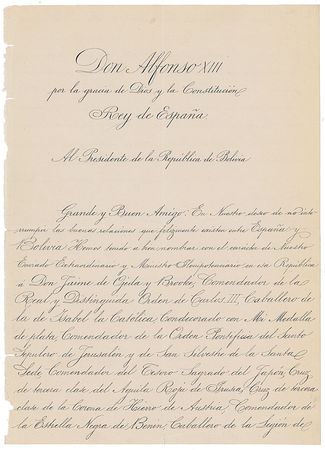 Don Alfonso XIII
por la gracia de Dios y la Constitución,
Rey de España
Al Presidente de la República de Bolivia
Grande y Buen Amigo: En Nuestro deseo de no inte-
rrumpir las buenas relaciones que felizmente existen entre España y
Bolivia Hemos tenido á bien nombrar con el carácter de Nuestro
Enviado Extraordinario y Ministro Plenipotenciario en esa República
a Don Jaime de Ojeda y Brooke, Comendador de la
Real y Distinguida Orden de Carlos III, Caballero de
la de Isabel la Católica Condecorado con Mi Medalla
de plata Comendador de la Orden Pontificia del Santo
Sepulcro de Jerusalén y de San Silvestre de la Santa
Sede Comendador del Tesoro Sagrado del Japón, Cruz
de tercera clase del Aguila Roja de Prusia, Cruz de tercera
clase de la Corona de Hierro de Austria, Comendador de
la Estrella Negra de Benin, Caballero de la Legión de